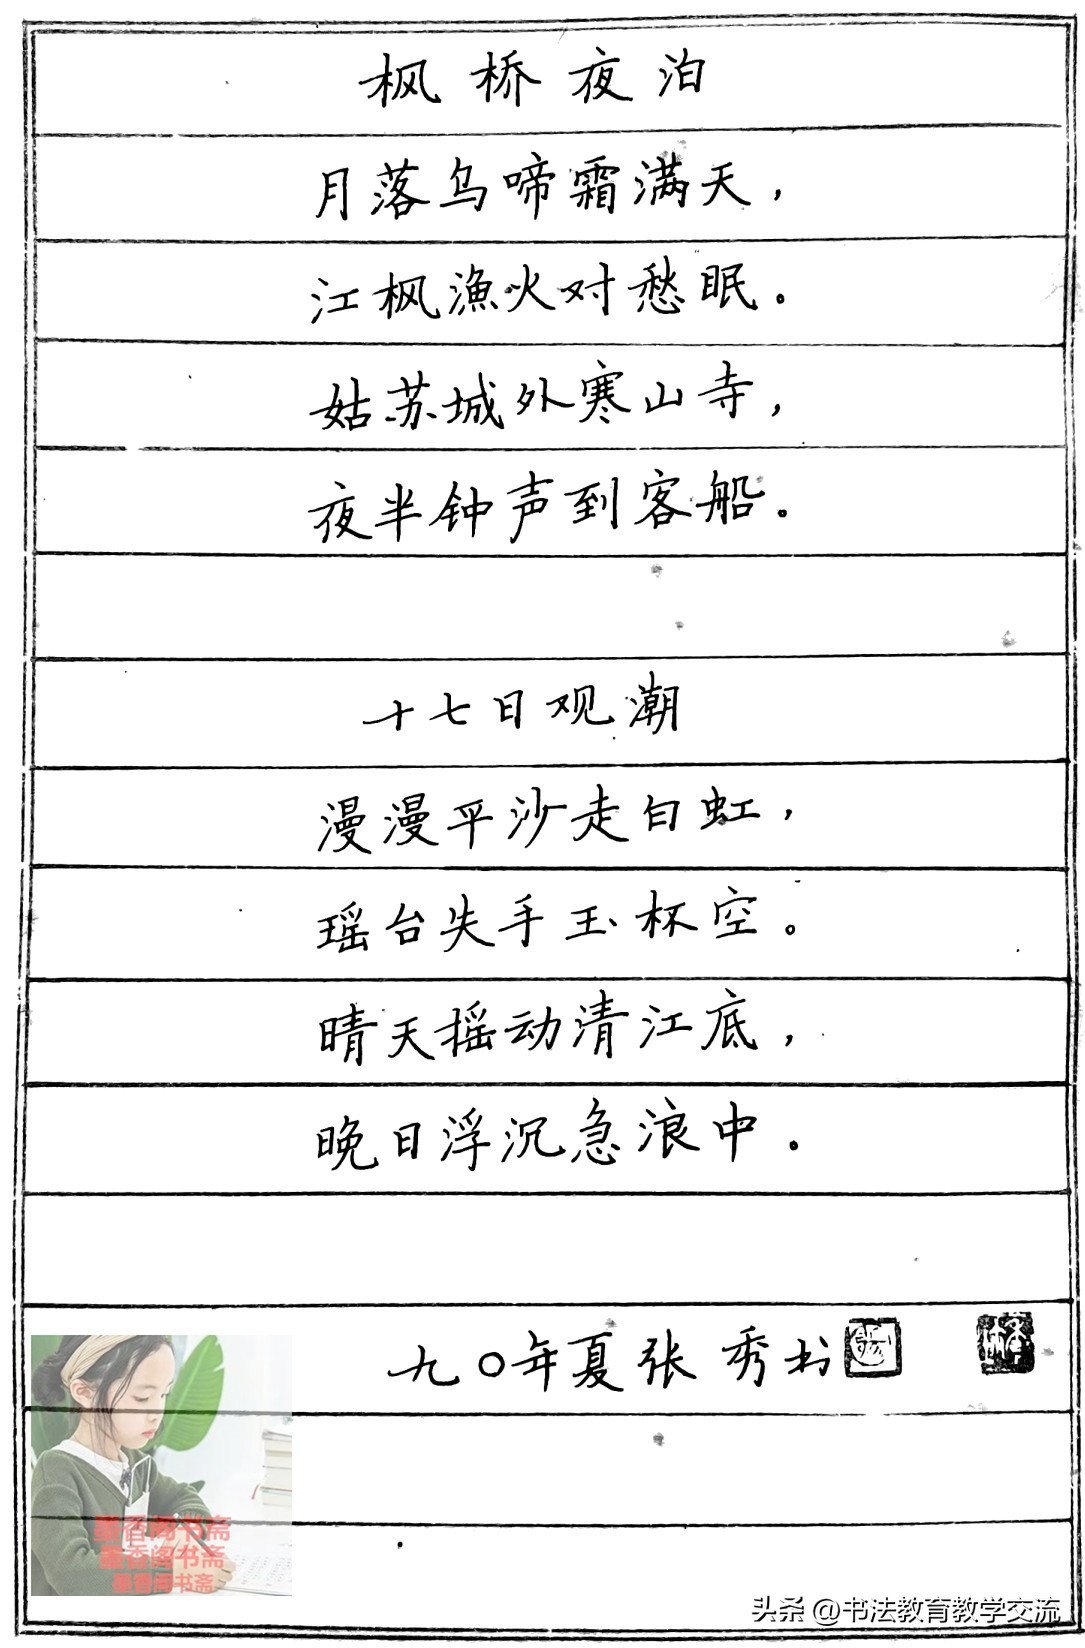 枫桥夜泊
月落乌啼霜满天，
江枫渔火对愁眠。
姑苏城外寒山寺，
夜半钟声到客船。
十七日观潮
漫漫平沙走白虹，
瑶台失手玉杯空。
晴天摇动清江底，
晚日浮沉急浪中。
九〇年夏张秀书
墨香阁书斋
墨香阁书斋
墨香阁书斋
头条 @书法教育教学交流